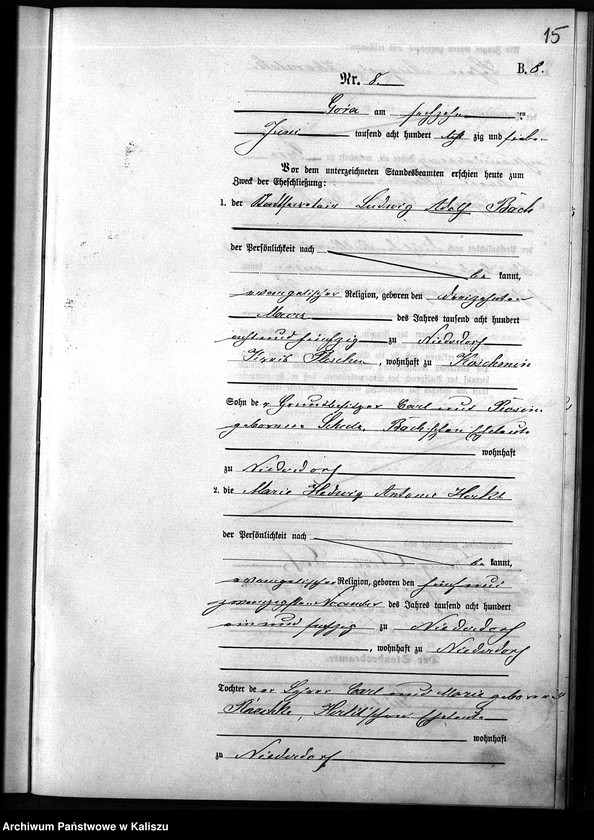 15
B. 8.
Nr. 8.
Góra am sechzehn ten
Juni tausend acht hundert acht zig und sieben
Vor dem unterzeichneten Standesbeamten erschien heute zum
Zweck der Eheschließung:
1. der Ludwig Adolf Bäck
der Persönlichkeit nach
be kannt,
evangelischer Religion, geboren den dreizehnten
März des Jahres tausend acht hundert
acht und fünfzig zu Niederdorf
Kreis Pleschen, wohnhaft zu Koschmin
Sohn de r Grundbesitzer Carl und Rosine
geborene Scholz, Bäck'schen Eheleute
wohnhaft
zu Niederdorf
2. die Marie Hedwig Antonie
der Persönlichkeit nach
be kannt,
evangelischer Religion, geboren den fünf und
zwanzigsten November des Jahres tausend acht hundert
ein und sechzig zu Niederdorf
, wohnhaft zu Niederdorf
Tochter de r Carl und Marie geborene
Eheleute
wohnhaft
zu Niederdorf
Archiwum Państwowe w Kaliszu